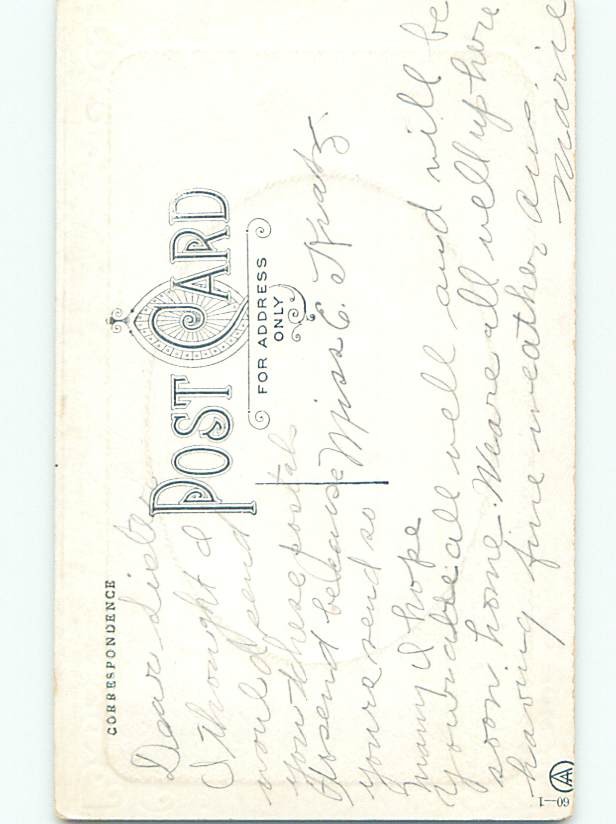 CORRESPONDENCE
POST CARD
FOR ADDRESS
ONLY
Dear
I thought I
would send
you these postals
to send because
you send so
many I hope
you are all well and will be
soon home. We are all well up here
having fine weather,
Marie
Miss C. Kratz
1—09